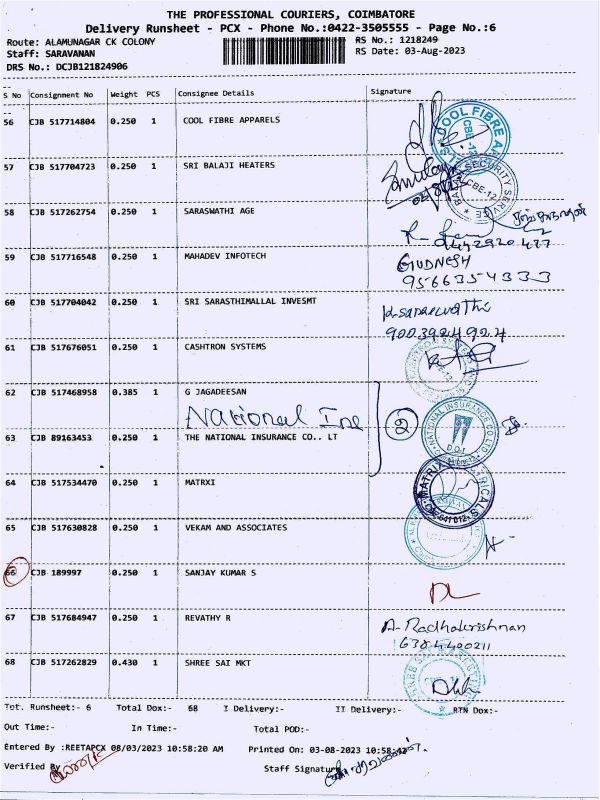 THE PROFESSIONAL COURIERS, COIMBATORE
Delivery Runsheet - PCX - Phone No.:0422-3505555 - Page No.:6
Route: ALAMUNAGAR CK COLONY
RS No.: 1218249
Staff: SARAVANAN
RS Date: 03-Aug-2023
DRS No.: DCJB121824906
S No Consignment No Weight PCS Consignee Details Signature
56 CJB 517714804 0.250 1 COOL FIBRE APPARELS
COOL FIBRE
CBE-12
57 CJB 517704723 0.250 1 SRI BALAJI HEATERS
SECURITY SERVICE
CBE-12
58 CJB 517262754 0.250 1 SARASWATHI AGE
59 CJB 517716548 0.250 1 MAHADEV INFOTECH
9566354333
60 CJB 517704042 0.250 1 SRI SARASTHIMALLAL INVESMT
9003924924
61 CJB 517676051 0.250 1 CASHTRON SYSTEMS
62 CJB 517468958 0.385 1 G JAGADEESAN
National Ine
2
NATIONAL INSURANCE CO LTD
63 CJB 89163453 0.250 1 THE NATIONAL INSURANCE CO.. LT
64 CJB 517534470 0.250 1 MATRXI
MATRIX
65 CJB 517630828 0.250 1 VEKAM AND ASSOCIATES
66 CJB 189997 0.250 1 SANJAY KUMAR S
67 CJB 517684947 0.250 1 REVATHY R
A-Radhakrishnan
6384400211
68 CJB 517262829 0.430 1 SHREE SAI MKT
Tot. Runsheet:- 6 Total Dox:- 68 I Delivery:- II Delivery:- RTN Dox:-
Out Time:- In Time:- Total POD:-
Entered By :REETAPCX 08/03/2023 10:58:20 AM Printed On: 03-08-2023 10:58
Verified By
Staff Signature